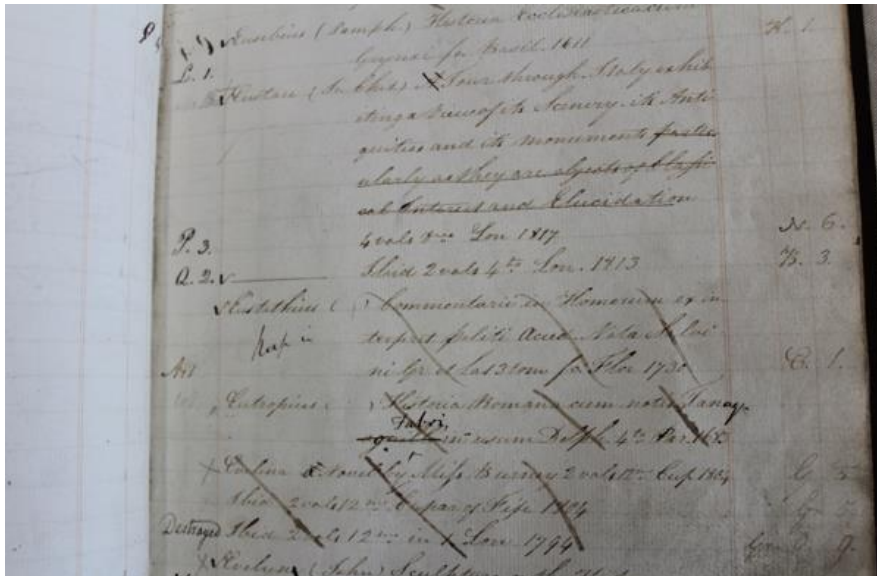 Eusebius (Pamph.) Historia Ecclesiastica cum K. 1.
L. 1. fo Basil. 1611
Eustace (Jn Chet) A Tour through Italy exhib
iting a View of its Scenery its Anti
quities and its Monuments partic
ularly as they are objects of Classi
cal Interest and Elucidation
P. 3. 4 vols 8vo Lon 1817 N. 6.
Q. 2. v Ibid 2 vols 4to Lon. 1813 B. 3
Eustathius ( ) Commentarii in Homerum ex in
keep in terpret Politi Accd. Nota
Art ni Gr. et Lat 3 tom fo Flor 1730 C. 1.
Eutropius ( ) Historia Romana cum notis Tanaq.
Fabri, in usum Delph. 4to Par. 1683
x Evelina A Novel by Miss Burney 2 vols 12mo Cup 1804 G 5
Ibid 2 vols 12mo Cupar of Fife 1804 G 5
Destroyed Ibid 2 vols 12mo in 1 Lon 1794 G. 9.
x Evelyn (John) Sculptura